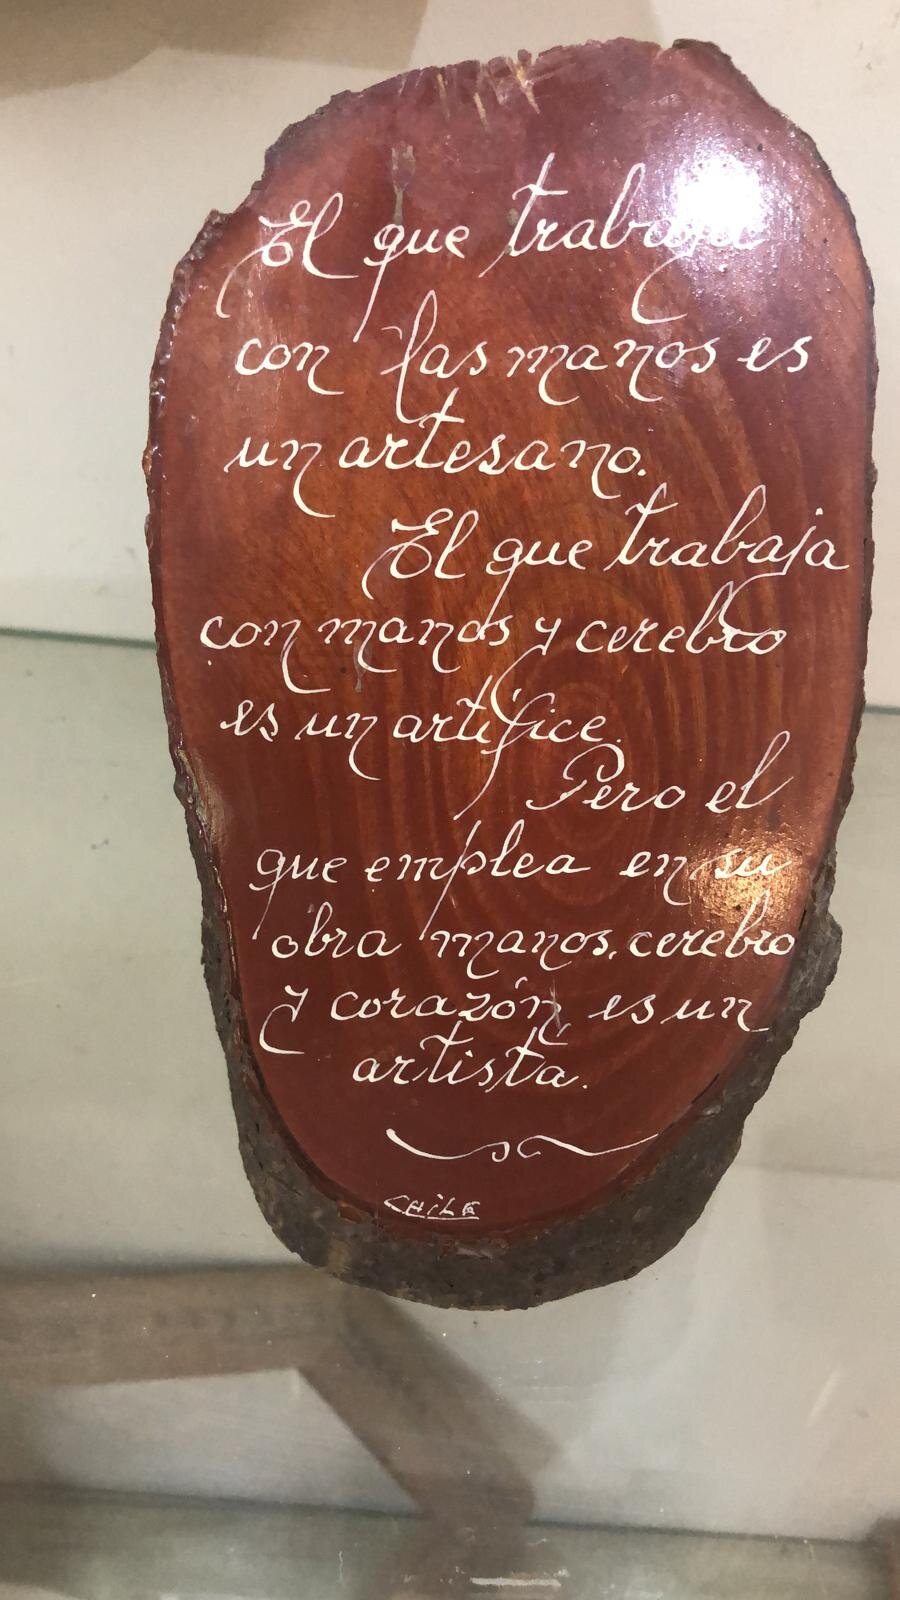 El que trabaja
con las manos es
un artesano.
El que trabaja
con manos y cerebro
es un artífice.
Pero el
que emplea en su
obra manos, cerebro
y corazón es un
artista.
CHILE